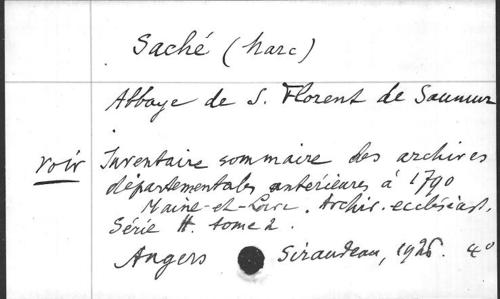 Saché (Marc)
Abbaye de S. Florent de Saumur
voir Inventaire sommaire des archives
départementales antérieures à 1790
Maine-et-Loire. Archiv. ecclésiast.
Série H. tome 2.
Angers Siraudeau, 1926. 4°